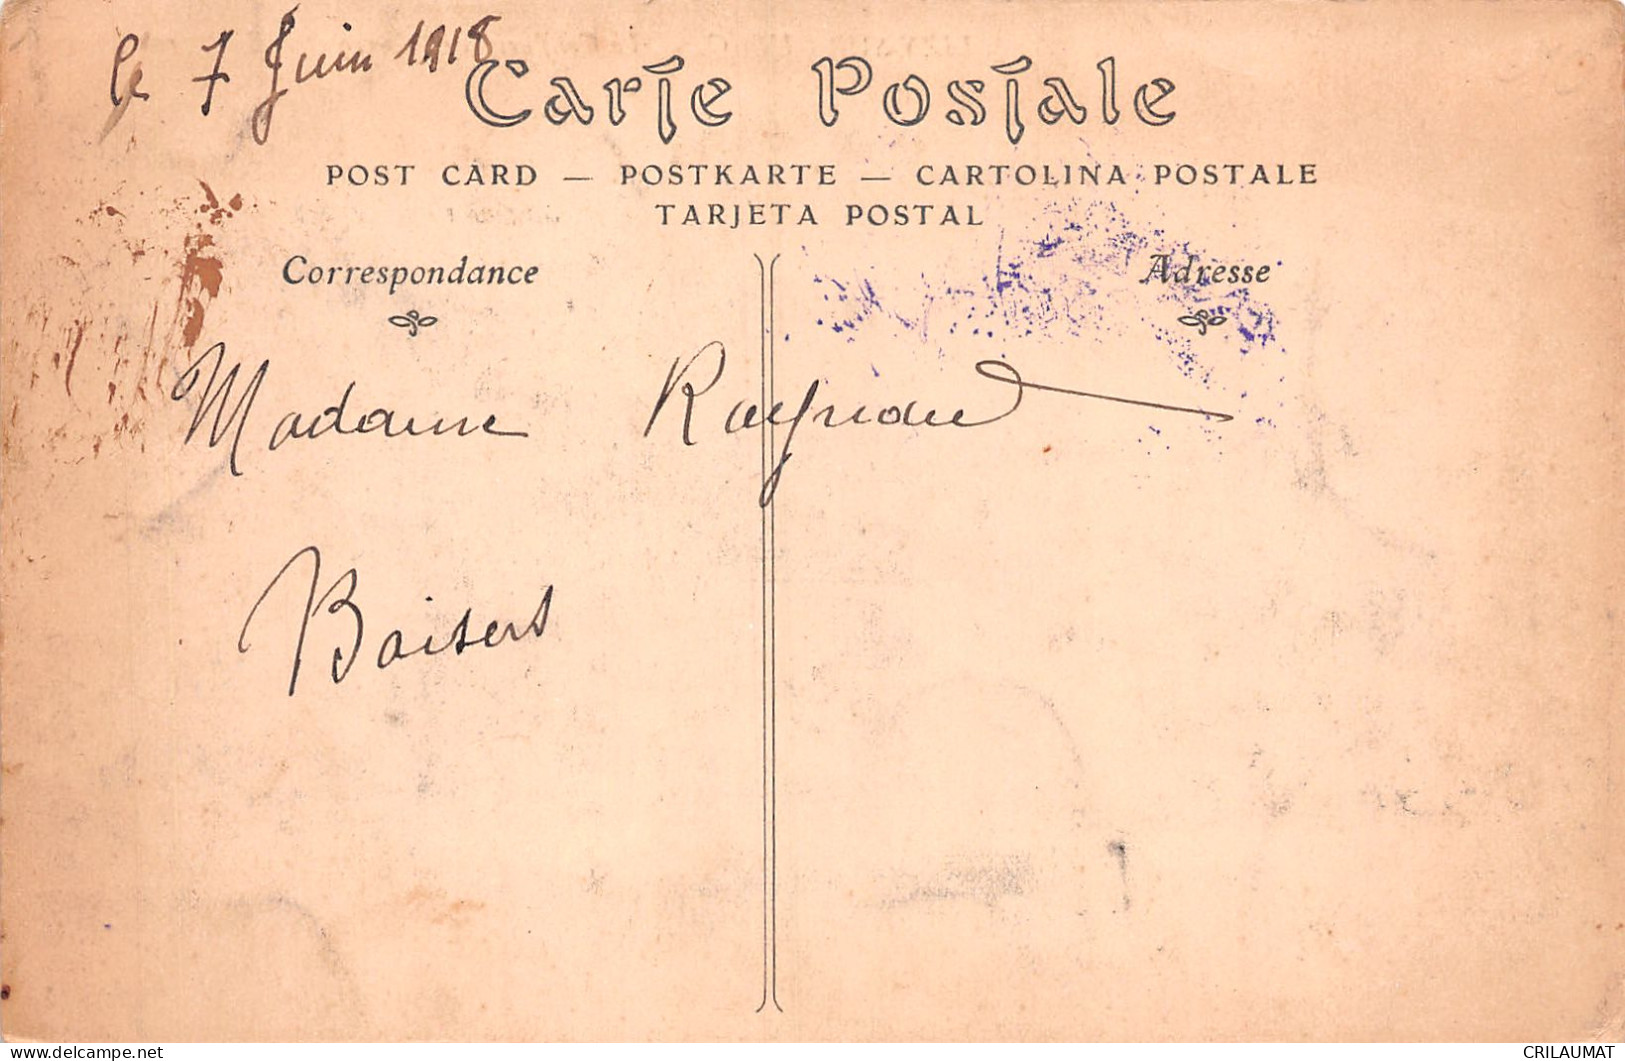 le 7 Juin 1918
Carte Postale
POST CARD — POSTKARTE — CARTOLINA POSTALE
TARJETA POSTAL
Correspondance
Adresse
Madame Raynau
Baisers
www.delcampe.net
CRILAUMAT